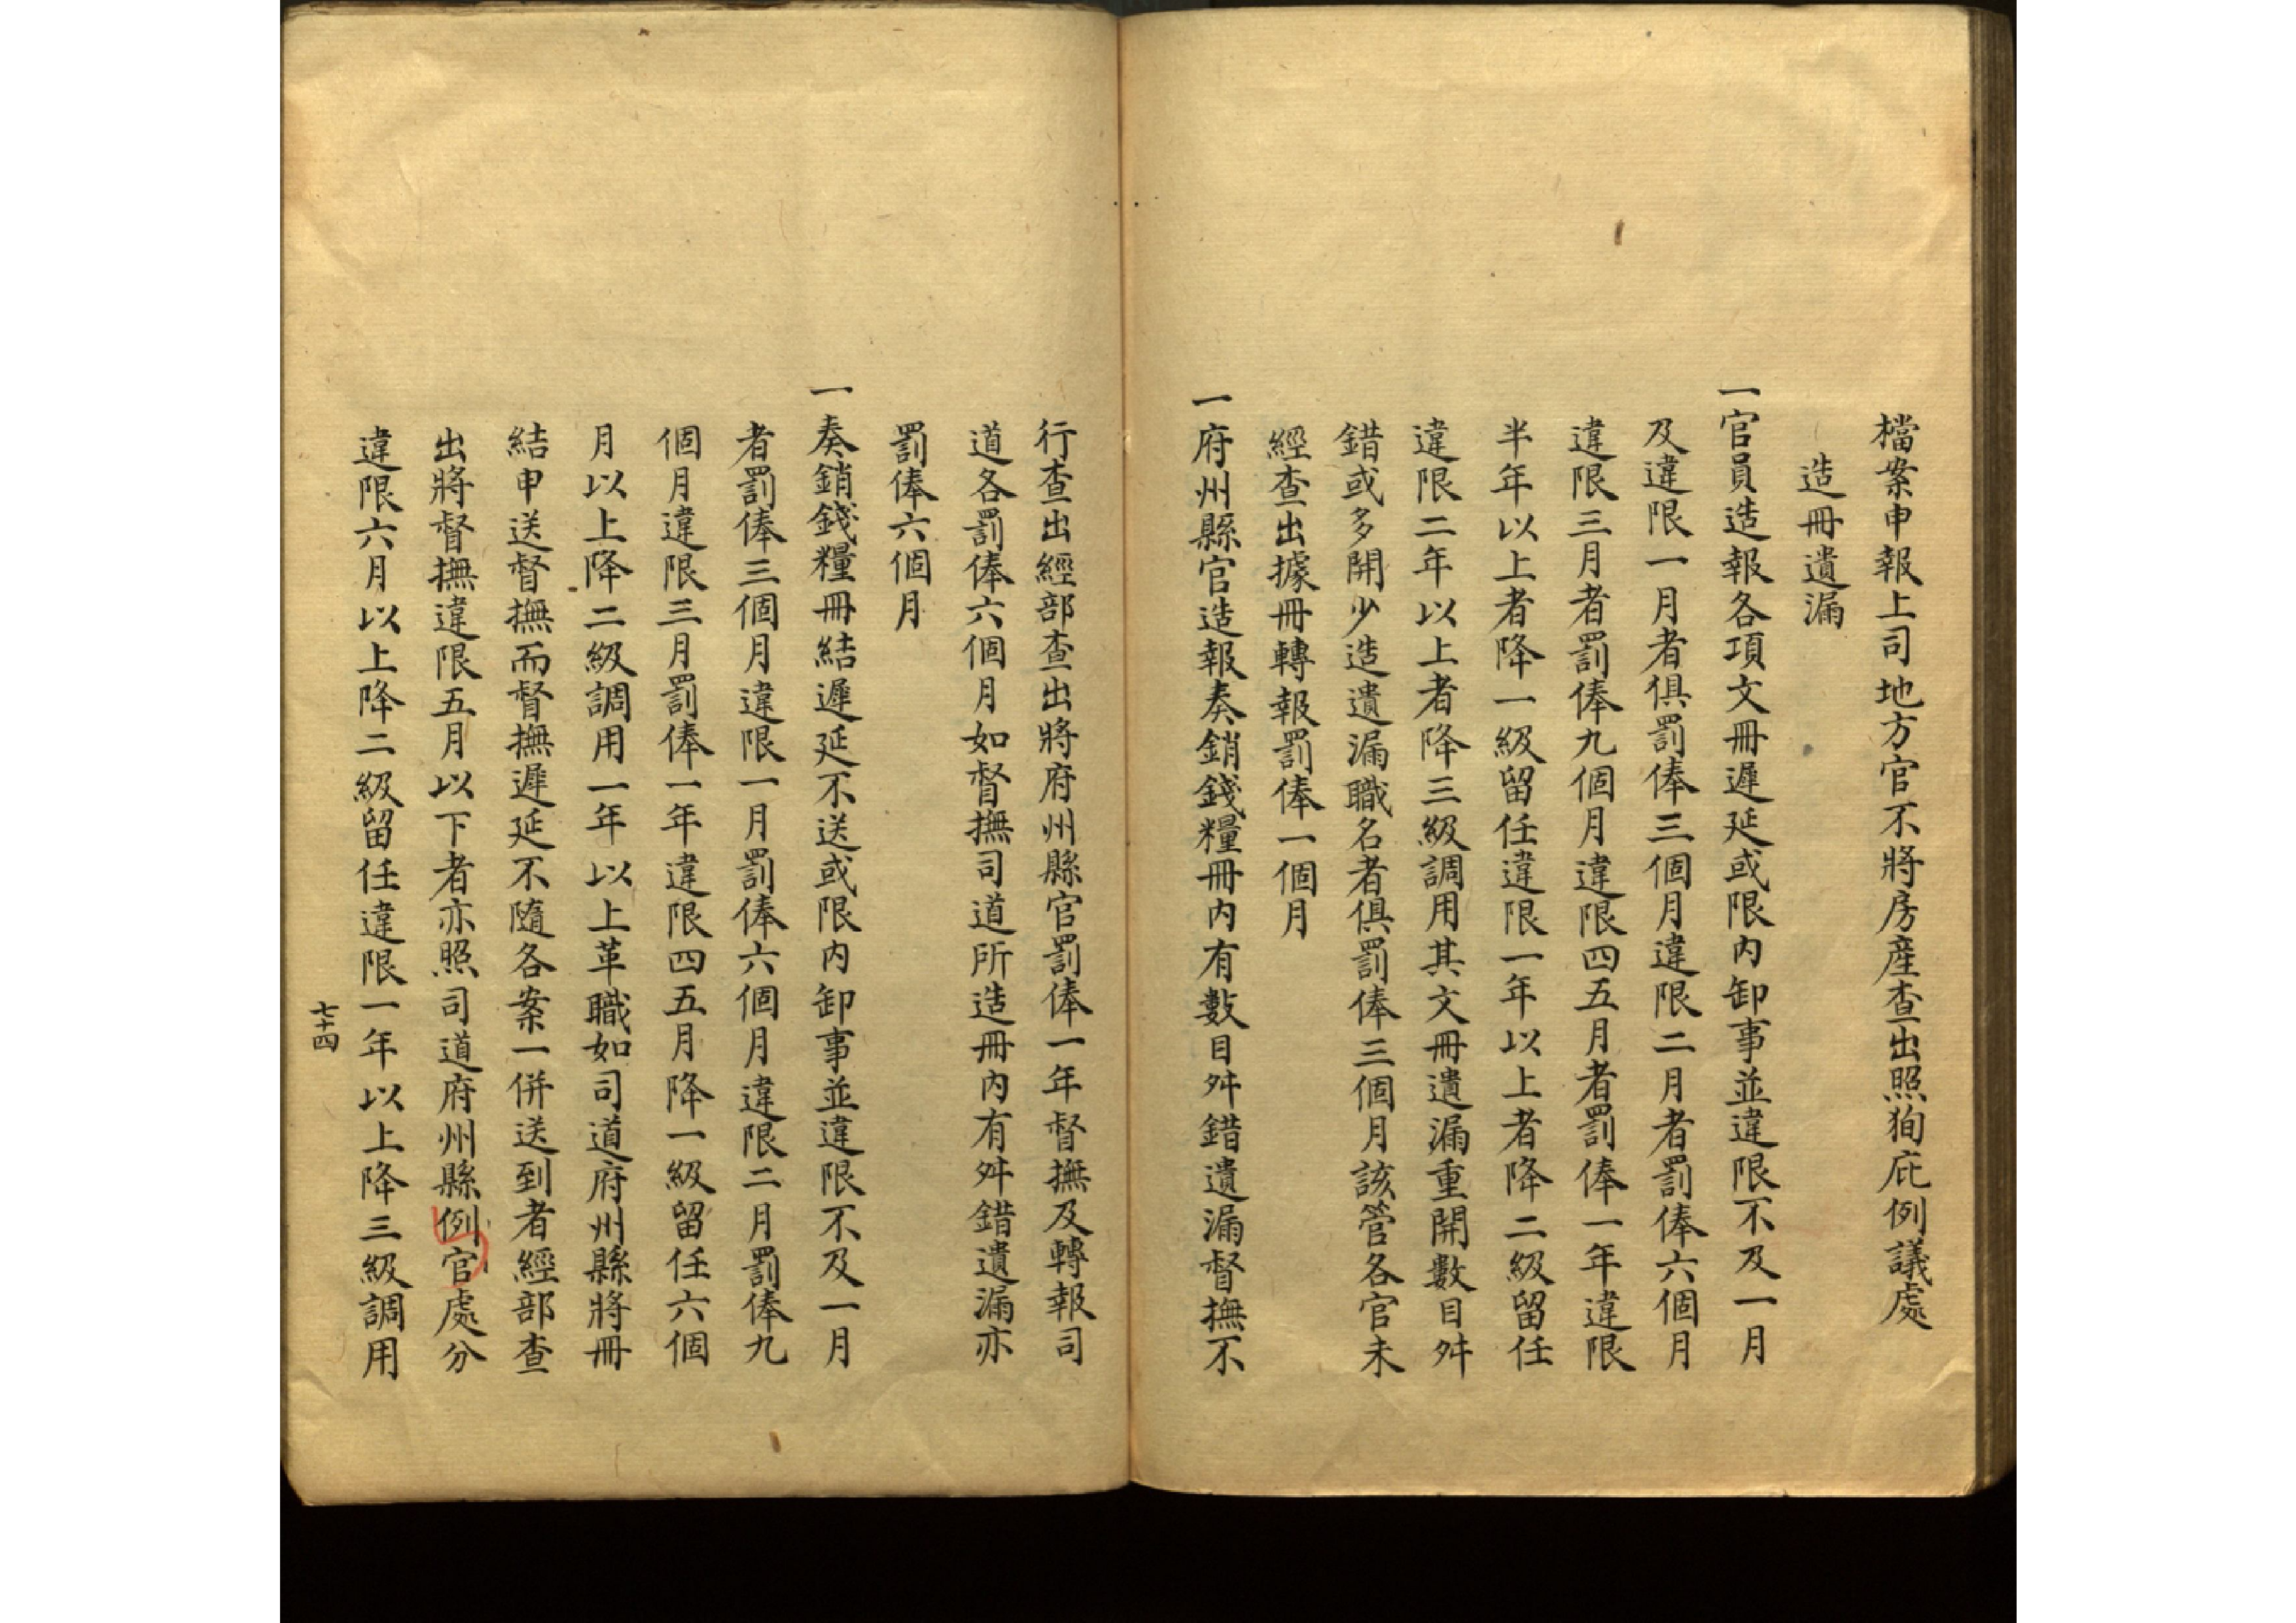 檔案申報上司地方官不將房產查出照狥庇例議處
造冊遺漏
一官員造報各項文冊遲延或限內卸事並違限不及一月
及違限一月者俱罰俸三個月違限二月者罰俸六個月
違限三月者罰俸九個月違限四五月者罰俸一年違限
半年以上者降一級留任違限一年以上者降二級留任
違限二年以上者降三級調用其文冊遺漏重開數目舛
錯或多開少造遺漏職名者俱罰俸三個月該管各官未
經查出據冊轉報罰俸一個月
一府州縣官造報奏銷錢糧冊內有數目舛錯遺漏督撫不
行查出經部查出將府州縣官罰俸一年督撫及轉報司
道各罰俸六個月如督撫司道所造冊內有舛錯遺漏亦
罰俸六個月
一奏銷錢糧冊結遲延不送或限內卸事並違限不及一月
者罰俸三個月違限一月罰俸六個月違限二月罰俸九
個月違限三月罰俸一年違限四五月降一級留任六個
月以上降二級調用一年以上革職如司道府州縣將冊
結申送督撫而督撫遲延不隨各案一併送到者經部查
出將督撫違限五月以下者亦照司道府州縣例官處分
違限六月以上降二級留任違限一年以上降三級調用
七十四